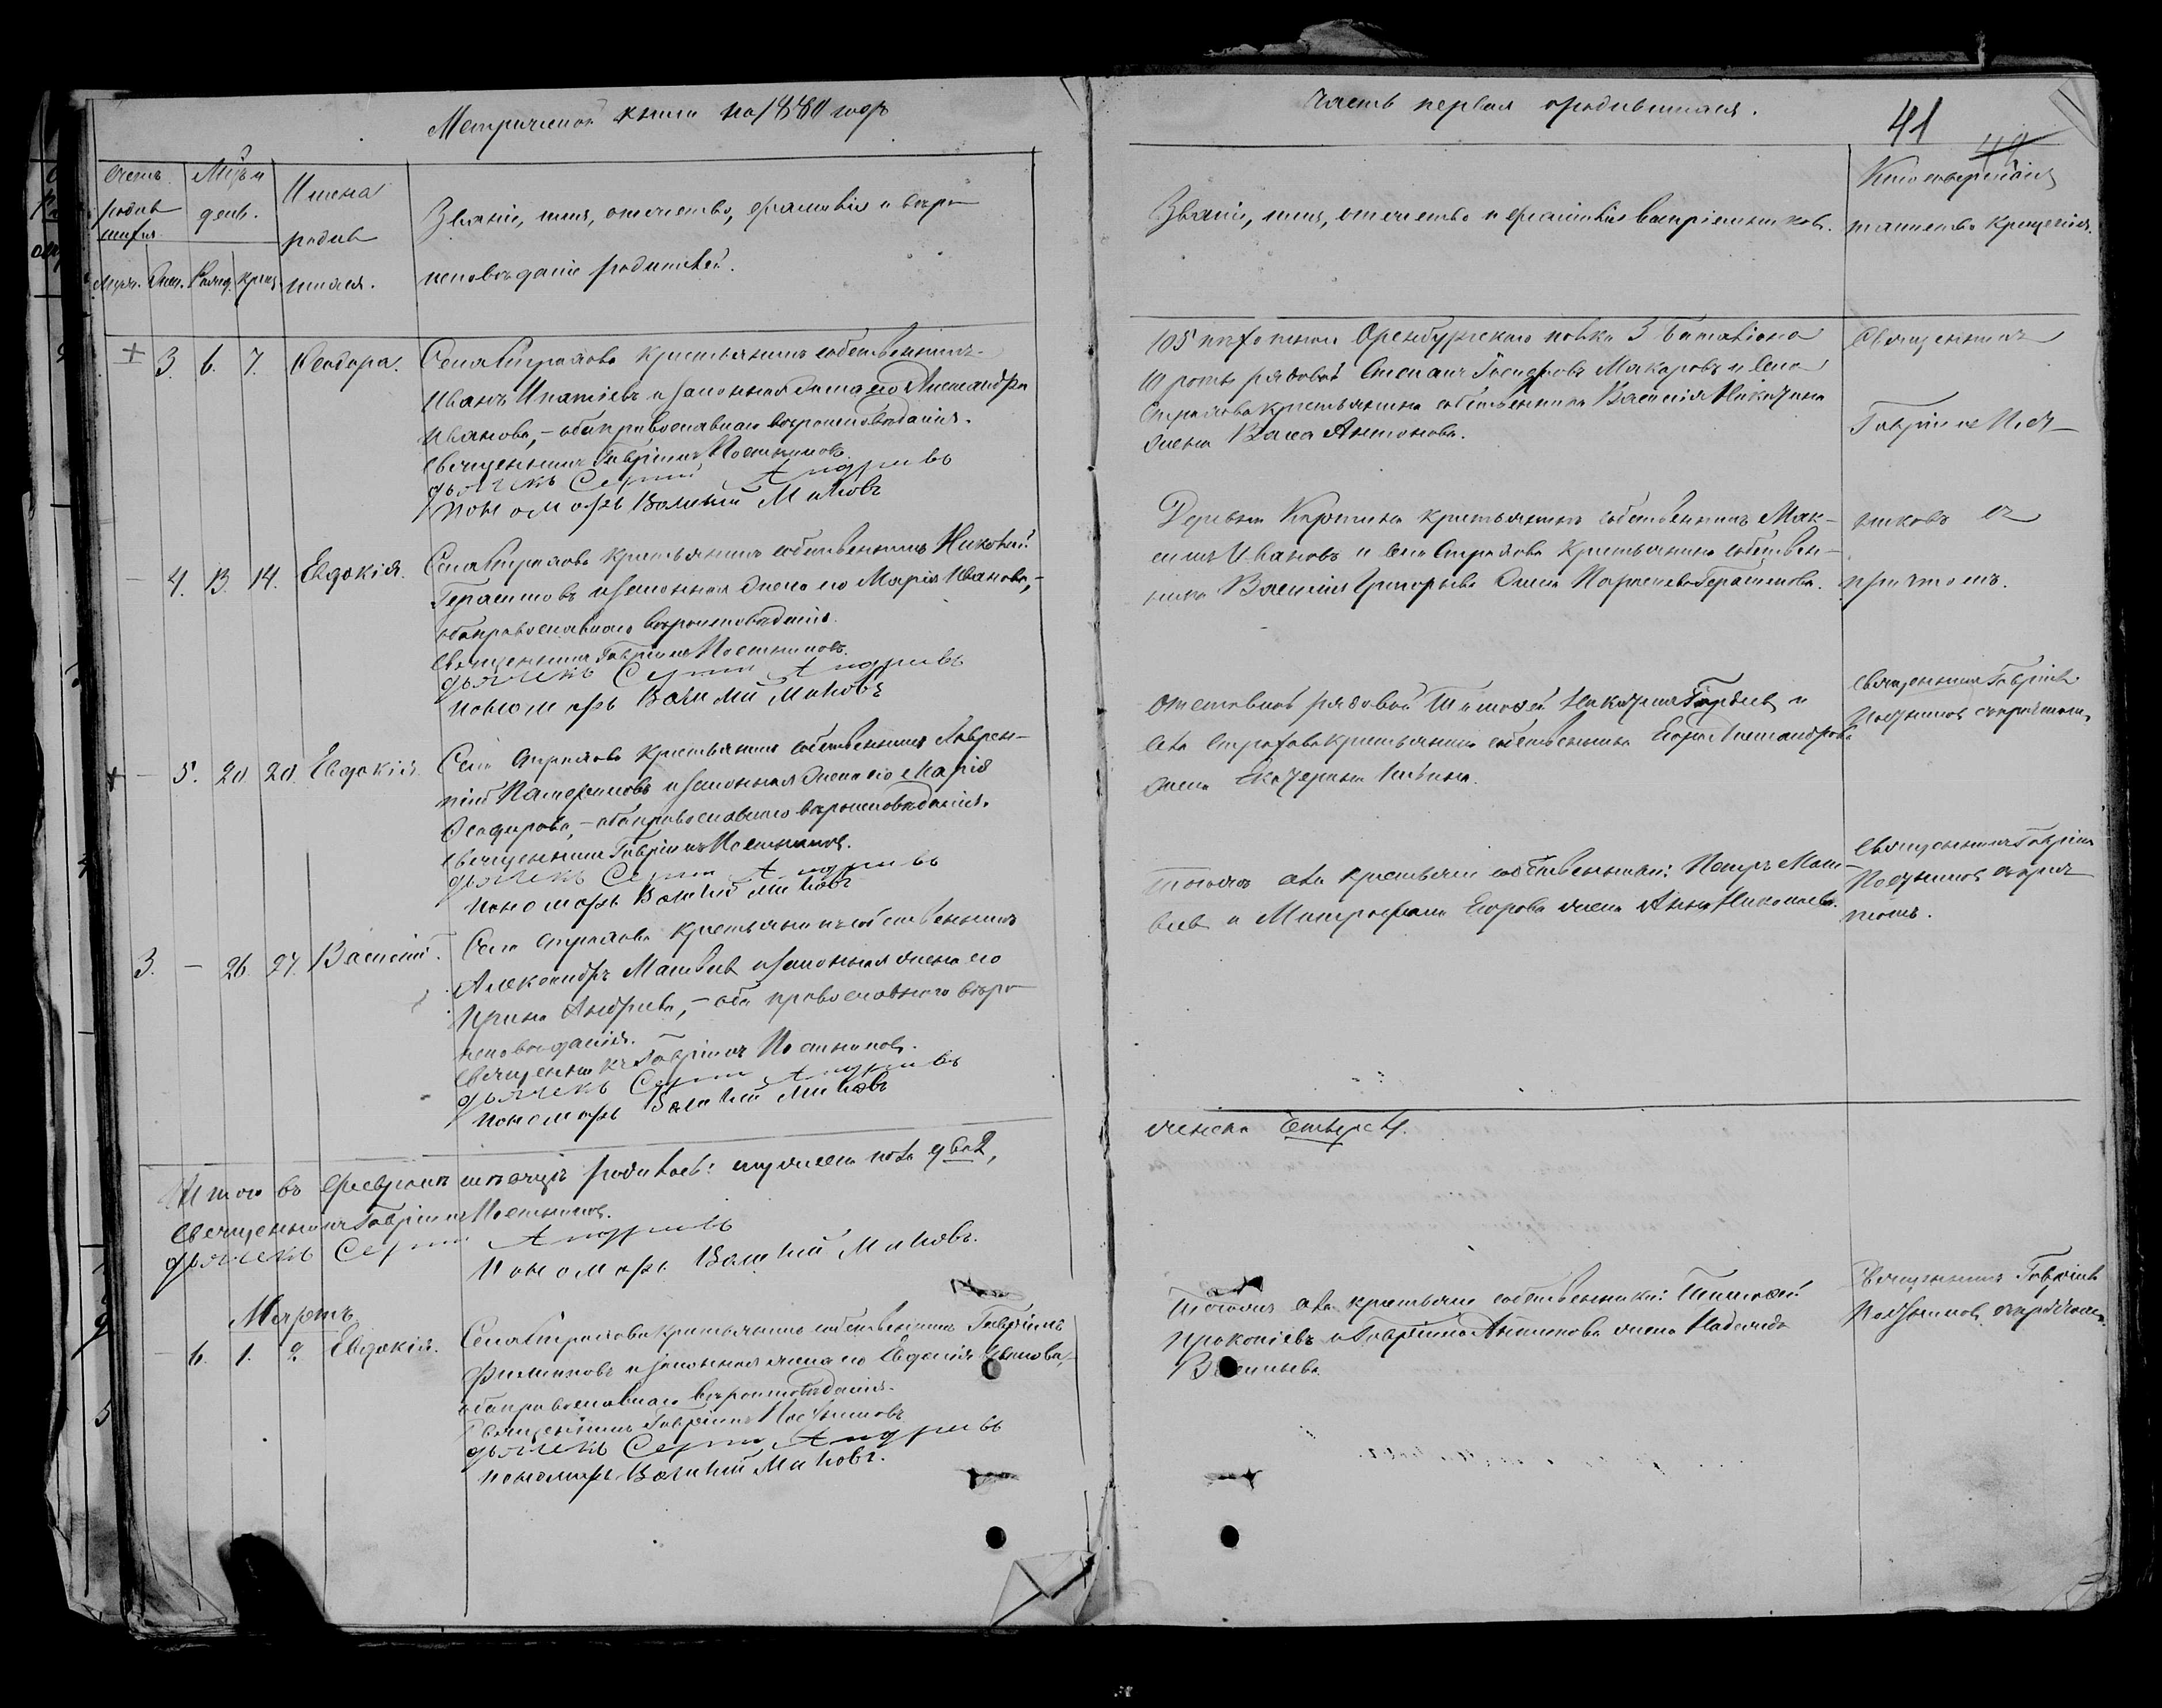 Метрической книги на 1880 годъ
Счетъ родившихся
Мѣсяцъ и день.
Имена родившихся.
Званіе, имя, отчество, фамилія и вѣро
исповѣданіе родителей.
Муж. Жен. Рожд. Крещ.
3. 6. 7. Ѳеодора. Села Страхова крестьянинъ собственникъ
Иванъ Игнатіевъ и законная жена его Александра
Иванова, – оба православнаго вѣроисповѣданія.
Священникъ Гавріилъ Постниковъ.
дьячекъ Сергій Андреевъ
пономарь Василій Миловъ
– 4. 13. 14. Евдокія. Села Страхова крестьянинъ собственникъ Николай
Герасимовъ и законная жена его Марія Иванова, –
оба православнаго вѣроисповѣданія.
Священникъ Гавріилъ Постниковъ.
дьячекъ Сергій Андреевъ
пономарь Василій Миловъ
– 5. 20. 20. Евдокія. Села Страхова крестьянинъ собственникъ Лаврен–
тій и законная жена его Марія
Ѳеодорова, – оба православнаго вѣроисповѣданія.
Священникъ Гавріилъ Постниковъ.
дьячекъ Сергій Андреевъ
пономарь Василій Миловъ
3. – 26. 27. Василій. Села Страхова крестьянинъ собственникъ
Александръ Матвѣевъ и законная жена его
Ирина Андреева, – оба православнаго вѣро–
исповѣданія.
Священникъ Гавріилъ Постниковъ.
дьячекъ Сергій Андреевъ
пономарь Василій Миловъ
Итого въ Февралѣ мѣсяцѣ родилось: мужеска пола два 2,
Священникъ Гавріилъ Постниковъ.
дьячекъ Сергій Андреевъ
Пономарь Василій Миловъ.
Мартъ
– 6. 1. 2. Евдокія. Села Страхова крестьянинъ собственникъ Гавріилъ
Филиповъ и законная жена его Евдокія Иванова, –
оба православнаго вѣроисповѣданія.
Священникъ Гавріилъ Постниковъ
дьячекъ Сергій Андреевъ
пономарь Василій Миловъ.
Часть первая о родившихся.
41
Званіе, имя, отчество и фамилія воспріемниковъ.
Кто совершалъ
таинство крещенія.
105 пѣхотнаго Оренбургскаго полка 3 баталіона
10 роты рядовой Степанъ Макаровъ и села
Страхова крестьянина собственника Василія Никитина
жена Васса Антонова.
Священникъ
Гавріилъ Пост–
никовъ съ
причтомъ.
Деревни крестьянинъ собственникъ Мак–
симъ Ивановъ и села Страхова крестьянина собствен–
ника Василія Григорьева жена Герасимова.
Отставной рядовой Тимоѳей Никитинъ и
села Страхова крестьянина собственника Егора Александрова
жена Екатерина Ильина.
Священникъ Гавріилъ
Постниковъ съ причтомъ.
Тогожъ села крестьяне собственники: Петръ Мат–
вѣевъ и Митрофана Егорова жена Анна Николаева.
Священникъ Гавріилъ
Постниковъ съ прич–
томъ.
женска четыре 4.
Тогожъ села крестьяне собственники: Тимоѳей
Прокопіевъ и Гавріила Антипова жена Надежда
Васильева.
Священникъ Гавріилъ
Постниковъ съ причтомъ.